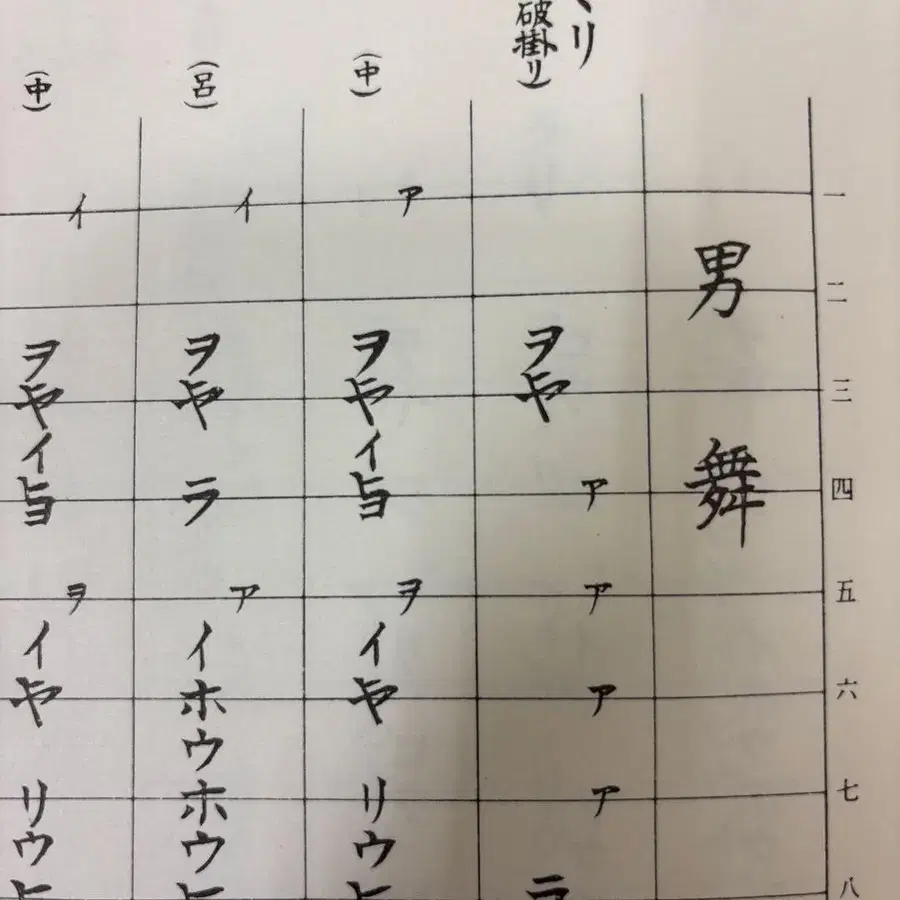 一
二
三
四
五
六
七
八
男舞
リ
破掛リ)
ヲヤ
ア
ア
ア
ア
ラ
(中)
ア
ヲヤイヨ
ヲ
イヤ
リウヒ
(呂)
イ
ヲヤラ
ア
イホウホウヒ
(中)
イ
ヲヤイヨ
ヲ
イヤ
リウヒ